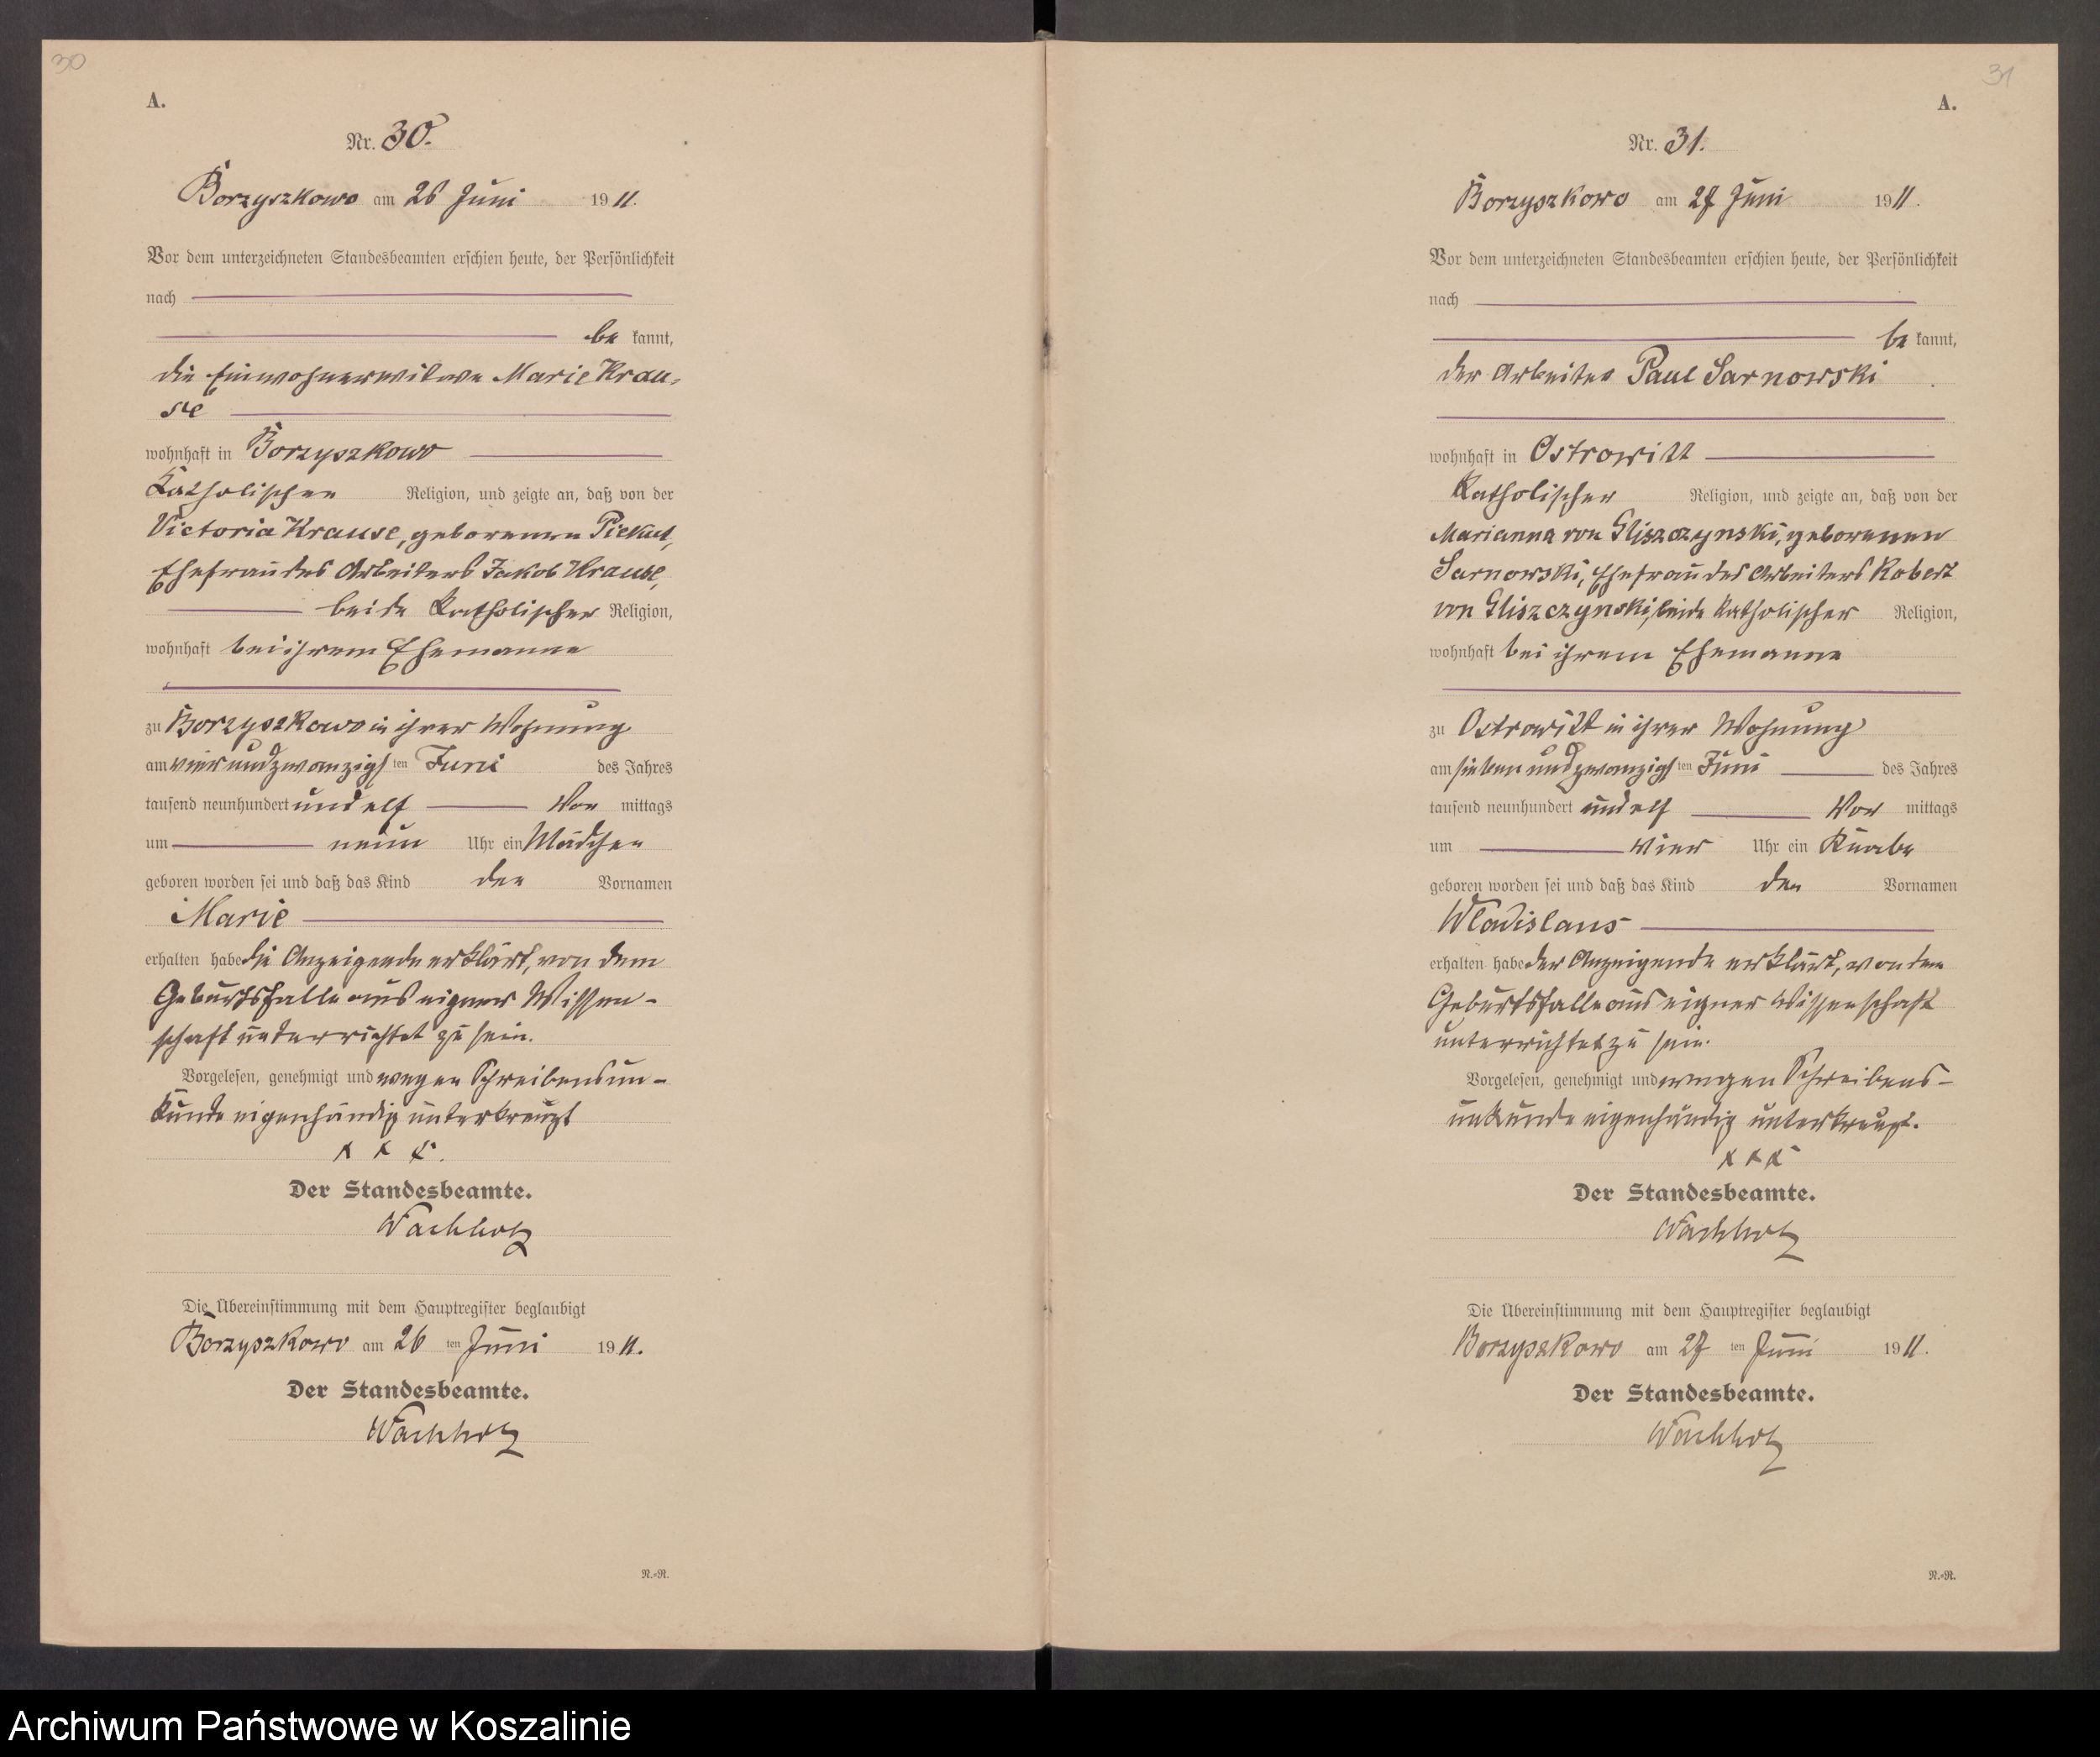 30
A.
Nr. 30.
Borzyszkowo am 26 Juni 1911.
Vor dem unterzeichneten Standesbeamten erschien heute, der Persönlichkeit
nach
be kannt,
die Einwohnerwitwe Marie Krau-
se
wohnhaft in Borzyszkowo
Katholischen Religion, und zeigte an, daß von der
Victoria Krause, geborenen
Ehefrau des Arbeiters Jakob Krause,
beide Katholischer Religion,
wohnhaft bei ihrem Ehemanne
zu Borzyszkowo in ihrer Wohnung
am vierundzwanzigsten Juni des Jahres
tausend neunhundert und elf Vor mittags
um neun Uhr ein Mädchen
geboren worden sei und daß das Kind den Vornamen
Marie
erhalten habe die Anzeigende erklärt, von dem
Geburtsfalle aus eigner Wissen-
schaft unterrichtet zu sein.
Vorgelesen, genehmigt und wegen Schreibensun-
kunde eigenhändig unterkreuzt
x x x.
Der Standesbeamte.
Wachholz
Die Übereinstimmung mit dem Hauptregister beglaubigt
Borzyszkowo am 26 ten Juni 1911.
Der Standesbeamte.
Wachholz
R.-R.
31
A.
Nr. 31.
Borzyszkowo am 27 Juni 1911.
Vor dem unterzeichneten Standesbeamten erschien heute, der Persönlichkeit
nach
be kannt,
der Arbeiter Paul Sarnowski
wohnhaft in Ostrowitt
Katholischer Religion, und zeigte an, daß von der
Marianna von Gliszczynski, geborenen
Sarnowski, Ehefrau des Arbeiters Robert
von Gliszczynski, beide Katholischer Religion,
wohnhaft bei ihrem Ehemanne
zu Ostrowitt in ihrer Wohnung
am siebenundzwanzigsten Juni des Jahres
tausend neunhundert und elf Vor mittags
um vier Uhr ein Knabe
geboren worden sei und daß das Kind den Vornamen
Wladislaus
erhalten habe der Anzeigende erklärt, von dem
Geburtsfalle aus eigner Wissenschaft
unterrichtet zu sein.
Vorgelesen, genehmigt und wegen Schreibens-
unkunde eigenhändig unterkreuzt.
x x x
Der Standesbeamte.
Wachholz
Die Übereinstimmung mit dem Hauptregister beglaubigt
Borzyszkowo am 27 ten Juni 1911.
Der Standesbeamte.
Wachholz
R.-R.
Archiwum Państwowe w Koszalinie